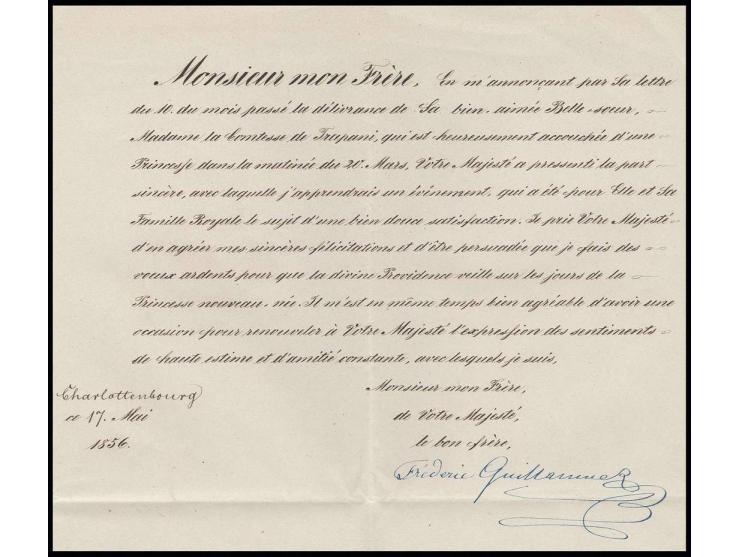 Monsieur mon Frère, En m'annonçant par Sa lettre
du 10. du mois passé la délivrance de Sa bien-aimée Belle-soeur,
Madame la Comtesse de Trapani, qui est heureusement accouchée d'une
Princesse dans la matinée du 20. Mars, Votre Majesté a pressenti la part
sincère, avec laquelle j'apprendrais un événement, qui a été pour Elle et Sa
Famille Royale le sujet d'une bien douce satisfaction. Je prie Votre Majesté
d'en agréer mes sincères félicitations et d'être persuadée que je fais des
voeux ardents pour que la divine Providence veille sur les jours de la
Princesse nouveau-née. Il m'est en même temps bien agréable d'avoir une
occasion pour renouveler à Votre Majesté l'expression des sentiments
de haute estime et d'amitié constante, avec lesquels je suis,
Monsieur mon Frère,
de Votre Majesté,
le bon frère,
Charlottenbourg
ce 17. Mai
1856.
Fréderic Guillaume